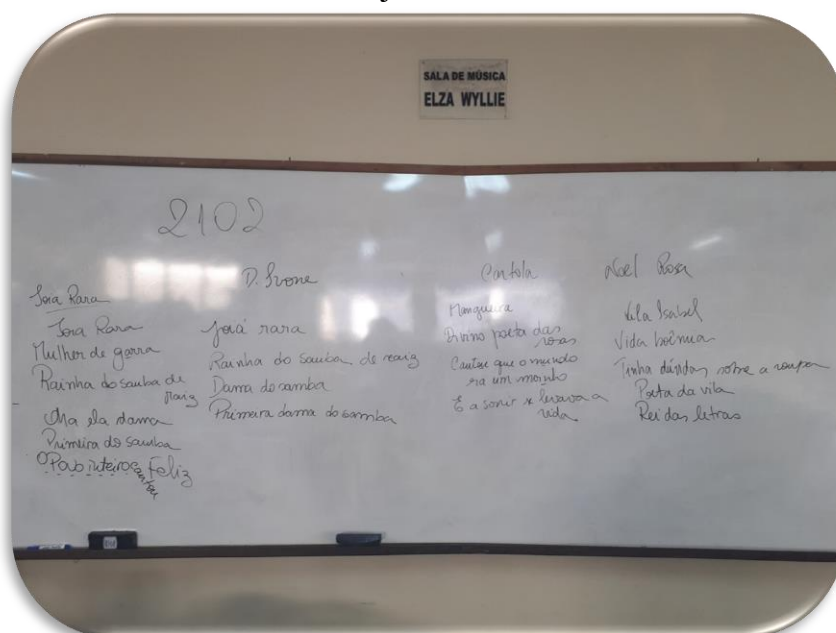 SALA DE MÚSICA
ELZA WYLLIE
2102
Joia Rara
Joia Rara
Mulher de garra
Rainha do samba de
raiz
Ora ela dama
Primeira do samba
O Povo inteiro cantou Feliz
D. Ivone
Joiá rara
Rainha do samba de raiz
Dama do samba
Primeira dama do samba
Cartola
Mangueira
Divino poeta das
rosas
Cantou que o mundo
era um moinho
E a sorrir se levava a
vida
Noel Rosa
Vila Isabel
Vida boêmia
Tinha dúvidas sobre a roupa
Poeta da vila
Rei das letras